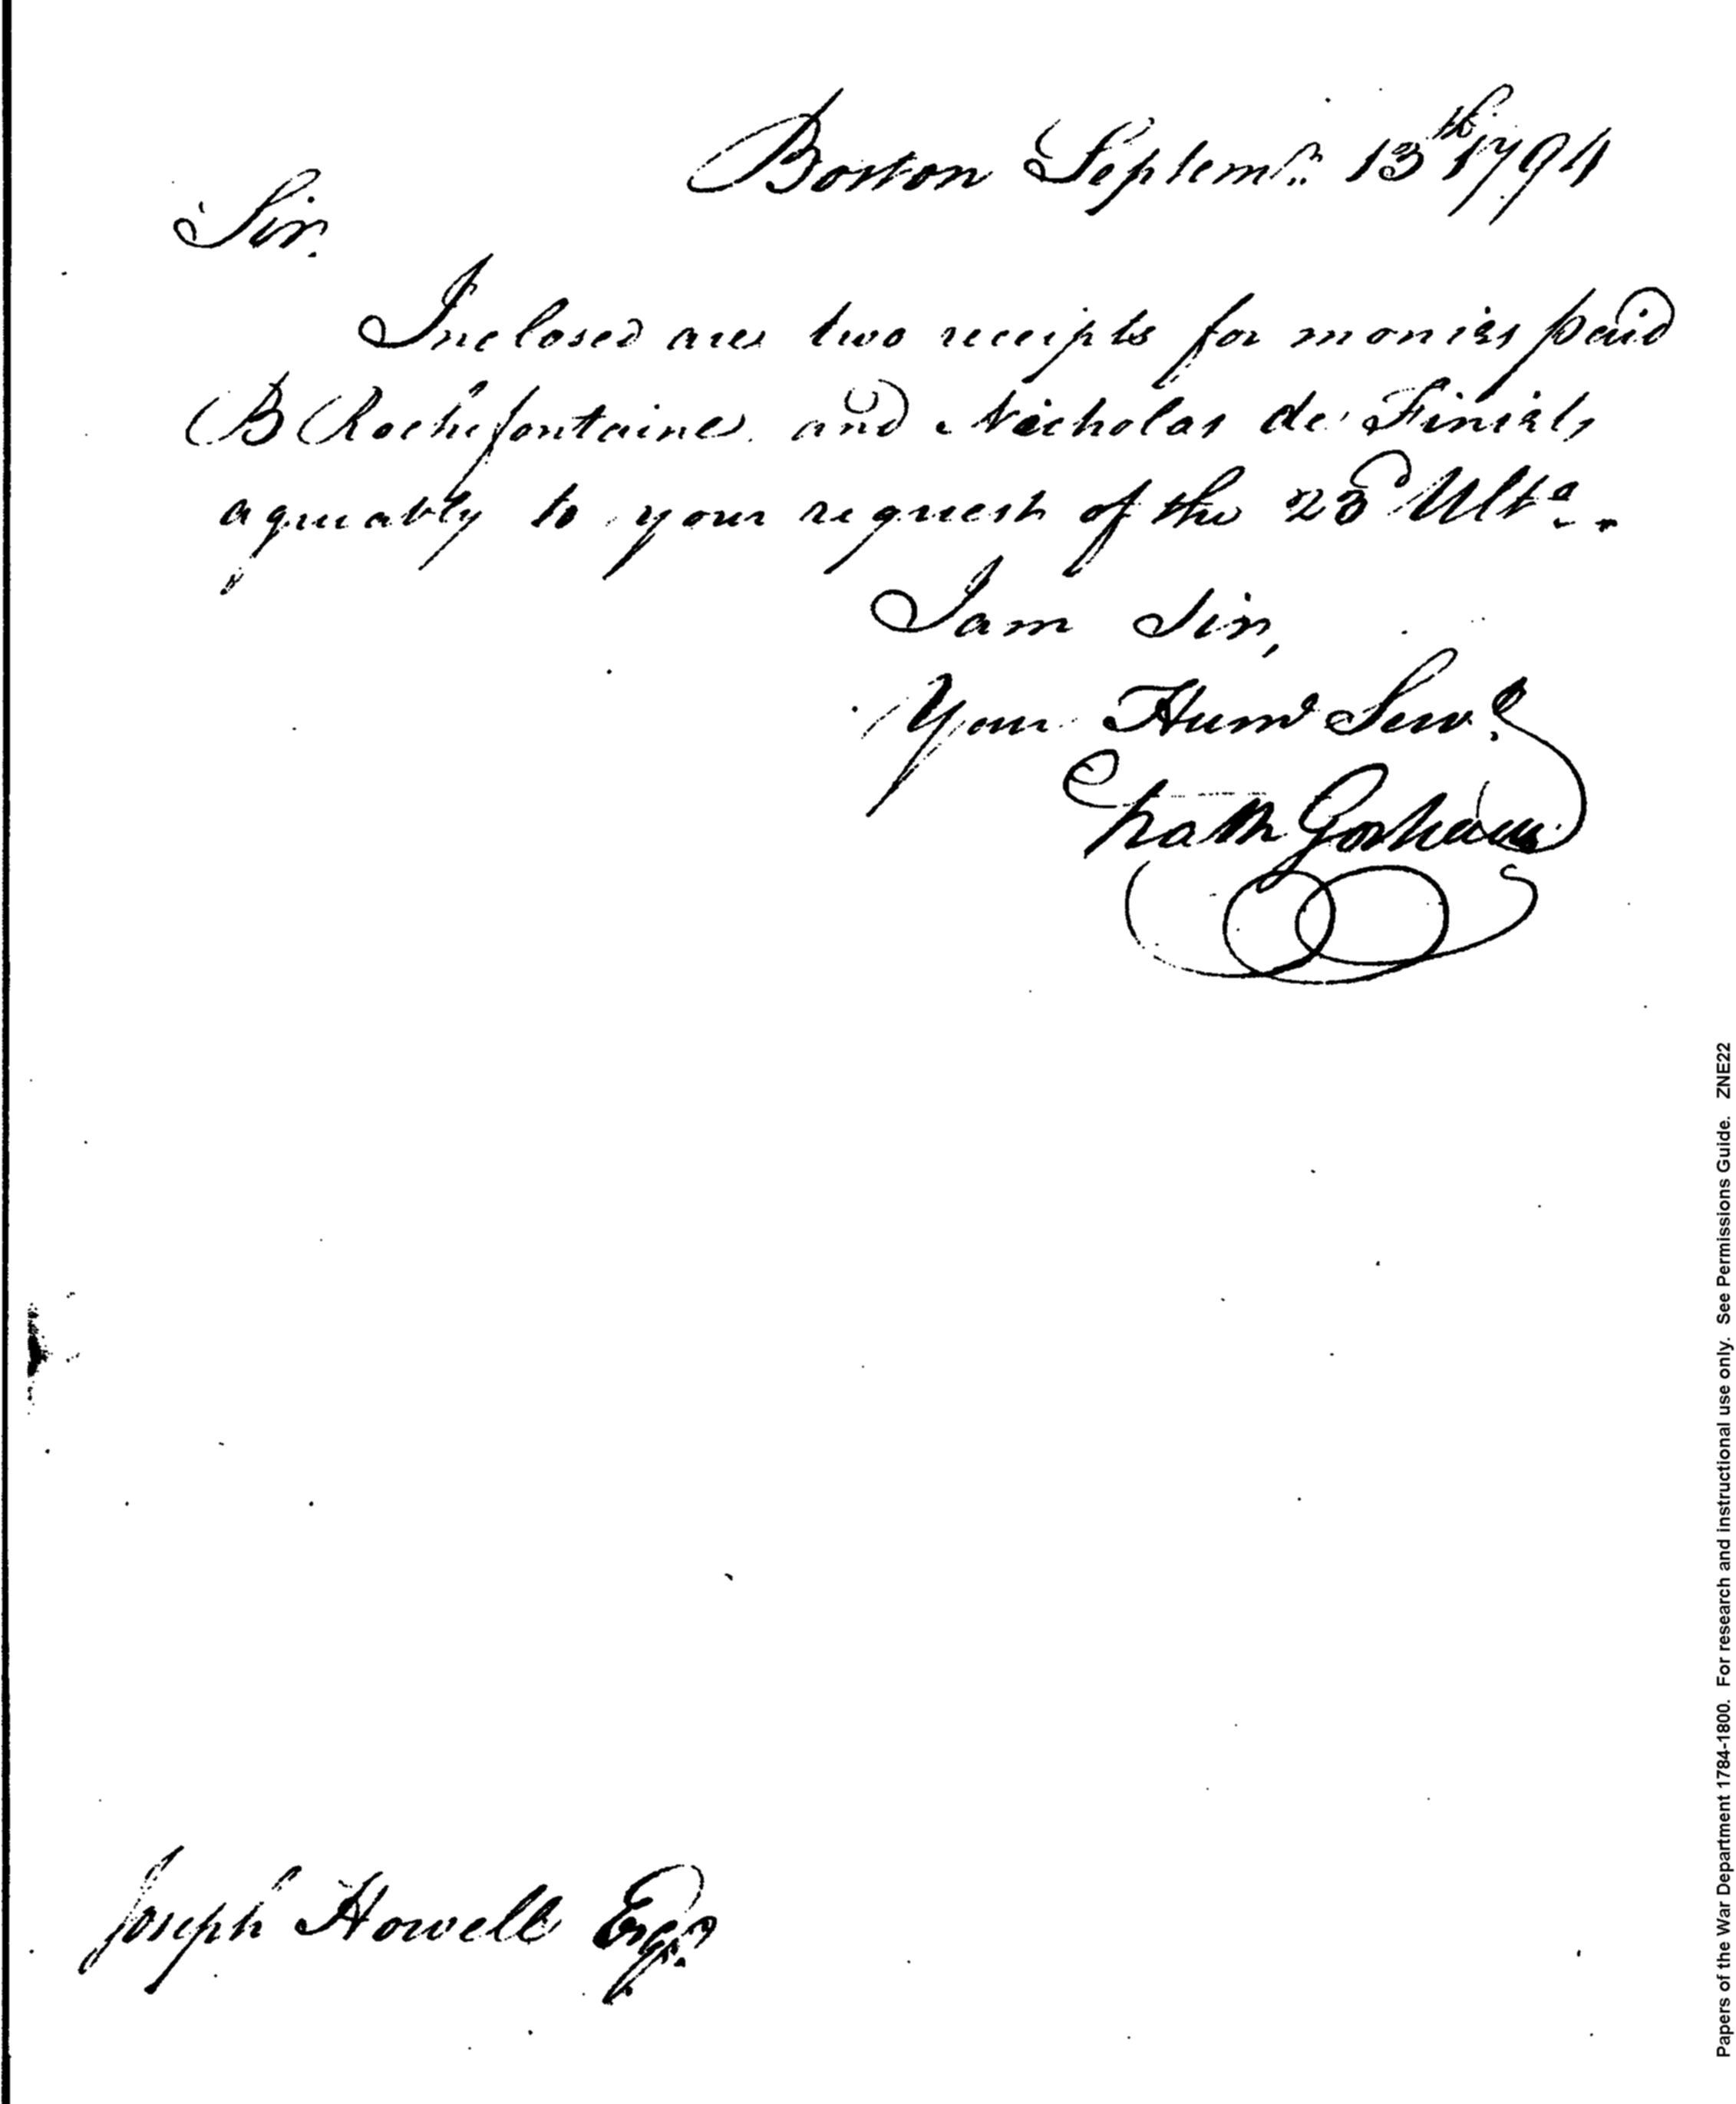 Boston Septemr. 13th 1794
Sir.
Inclosed are two receipts for monies paid
B Rochefontaine and Nicholas de Finiels
agreeably to your request of the 23d Ulto.
I am Sir,
Your Hume Servt.
Nath Gorham
Joseph Howell Esqr.
Papers of the War Department 1784-1800. For research and instructional use only. See Permissions Guide. ZNE22